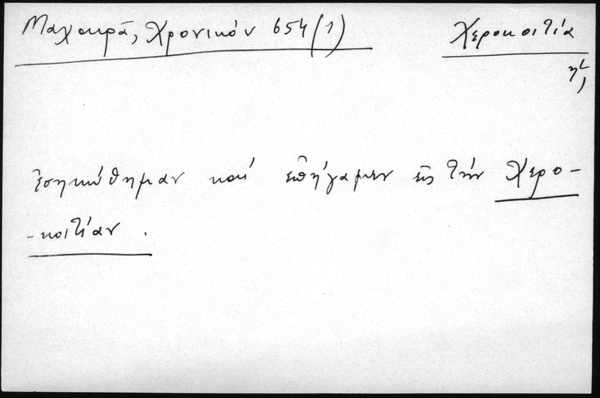 Μαχαιρᾶ, Χρονικόν 654 (1)
Χεροκοιτία
ἡ,
ἐσηκώθημαν καί ἐπήγαμεν εἰς τήν Χερο-
-κοιτίαν.